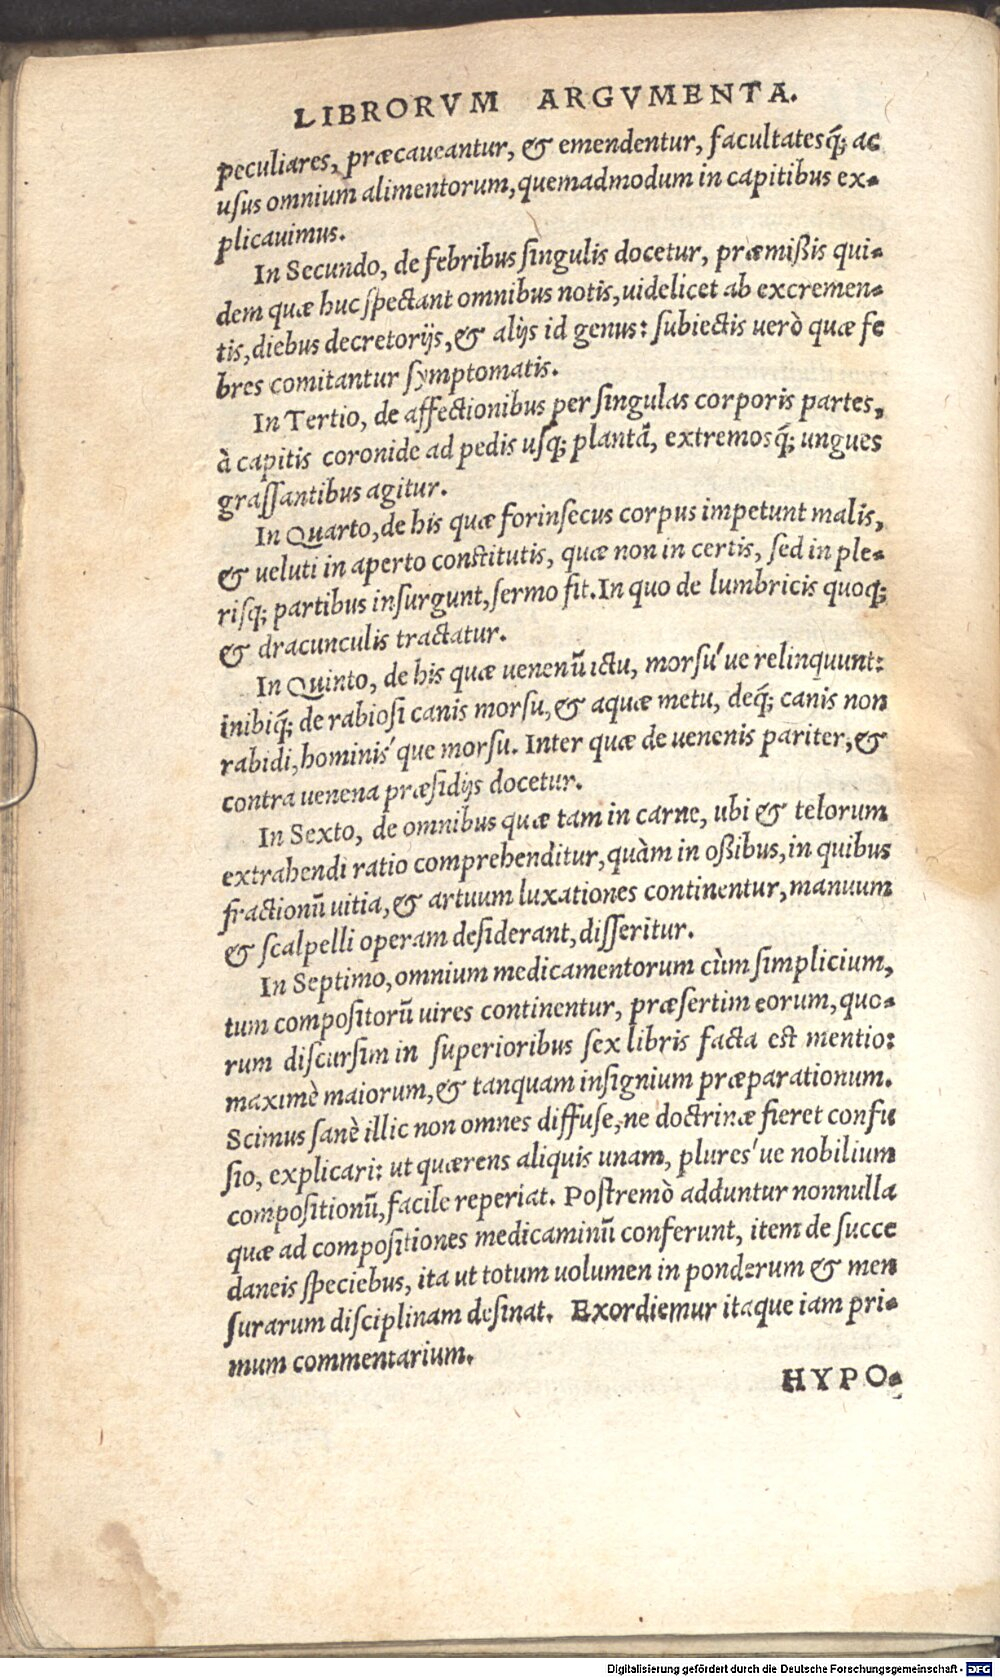 LIBRORVM ARGVMENTA.
peculiares, præcaueantur, & emendentur, facultatesq́; ac
usus omnium alimentorum, quemadmodum in capitibus ex-
plicauimus.
In Secundo, de febribus ſingulis docetur, præmißis qui-
dem quæ huc ſpectant omnibus notis, uidelicet ab excremen-
tis, diebus decretorijs, & alijs id genus: ſubiectis uerò quæ fe
bres comitantur ſymptomatis.
In Tertio, de affectionibus per ſingulas corporis partes,
à capitis coronide ad pedis uſq; plantã, extremosq́; ungues
graſſantibus agitur.
In Quarto, de his quæ forinſecus corpus impetunt malis,
& ueluti in aperto conſtitutis, quæ non in certis, ſed in ple-
riſq; partibus inſurgunt, ſermo fit. In quo de lumbricis quoq;
& dracunculis tractatur.
In Quinto, de his quæ uenenũ ictu, morſu´ue relinquunt:
inibiq́; de rabioſi canis morſu, & aquæ metu, deq́; canis non
rabidi, hominis´que morſu. Inter quæ de uenenis pariter, &
contra uenena præſidijs docetur.
In Sexto, de omnibus quæ tam in carne, ubi & telorum
extrahendi ratio comprehenditur, quàm in oßibus, in quibus
fractionũ uitia, & artuum luxationes continentur, manuum
& ſcalpelli operam deſiderant, diſſeritur.
In Septimo, omnium medicamentorum cùm ſimplicium,
tum compoſitorũ uires continentur, præſertim eorum, quo-
rum diſcurſim in ſuperioribus ſex libris facta eſt mentio:
maximè maiorum, & tanquam inſignium præparationum.
Scimus ſanè illic non omnes diffuſe, ne doctrinæ fieret confu
ſio, explicari: ut quærens aliquis unam, plures´ue nobilium
compoſitionũ, facile reperiat. Poſtremò adduntur nonnulla
quæ ad compoſitiones medicaminũ conferunt, item de ſucce
daneis ſpeciebus, ita ut totum uolumen in ponderum & men
ſurarum diſciplinam deſinat. Exordiemur itaque iam pri-
mum commentarium.
HYPO-
Digitalisierung gefördert durch die Deutsche Forschungsgemeinschaft - DFG